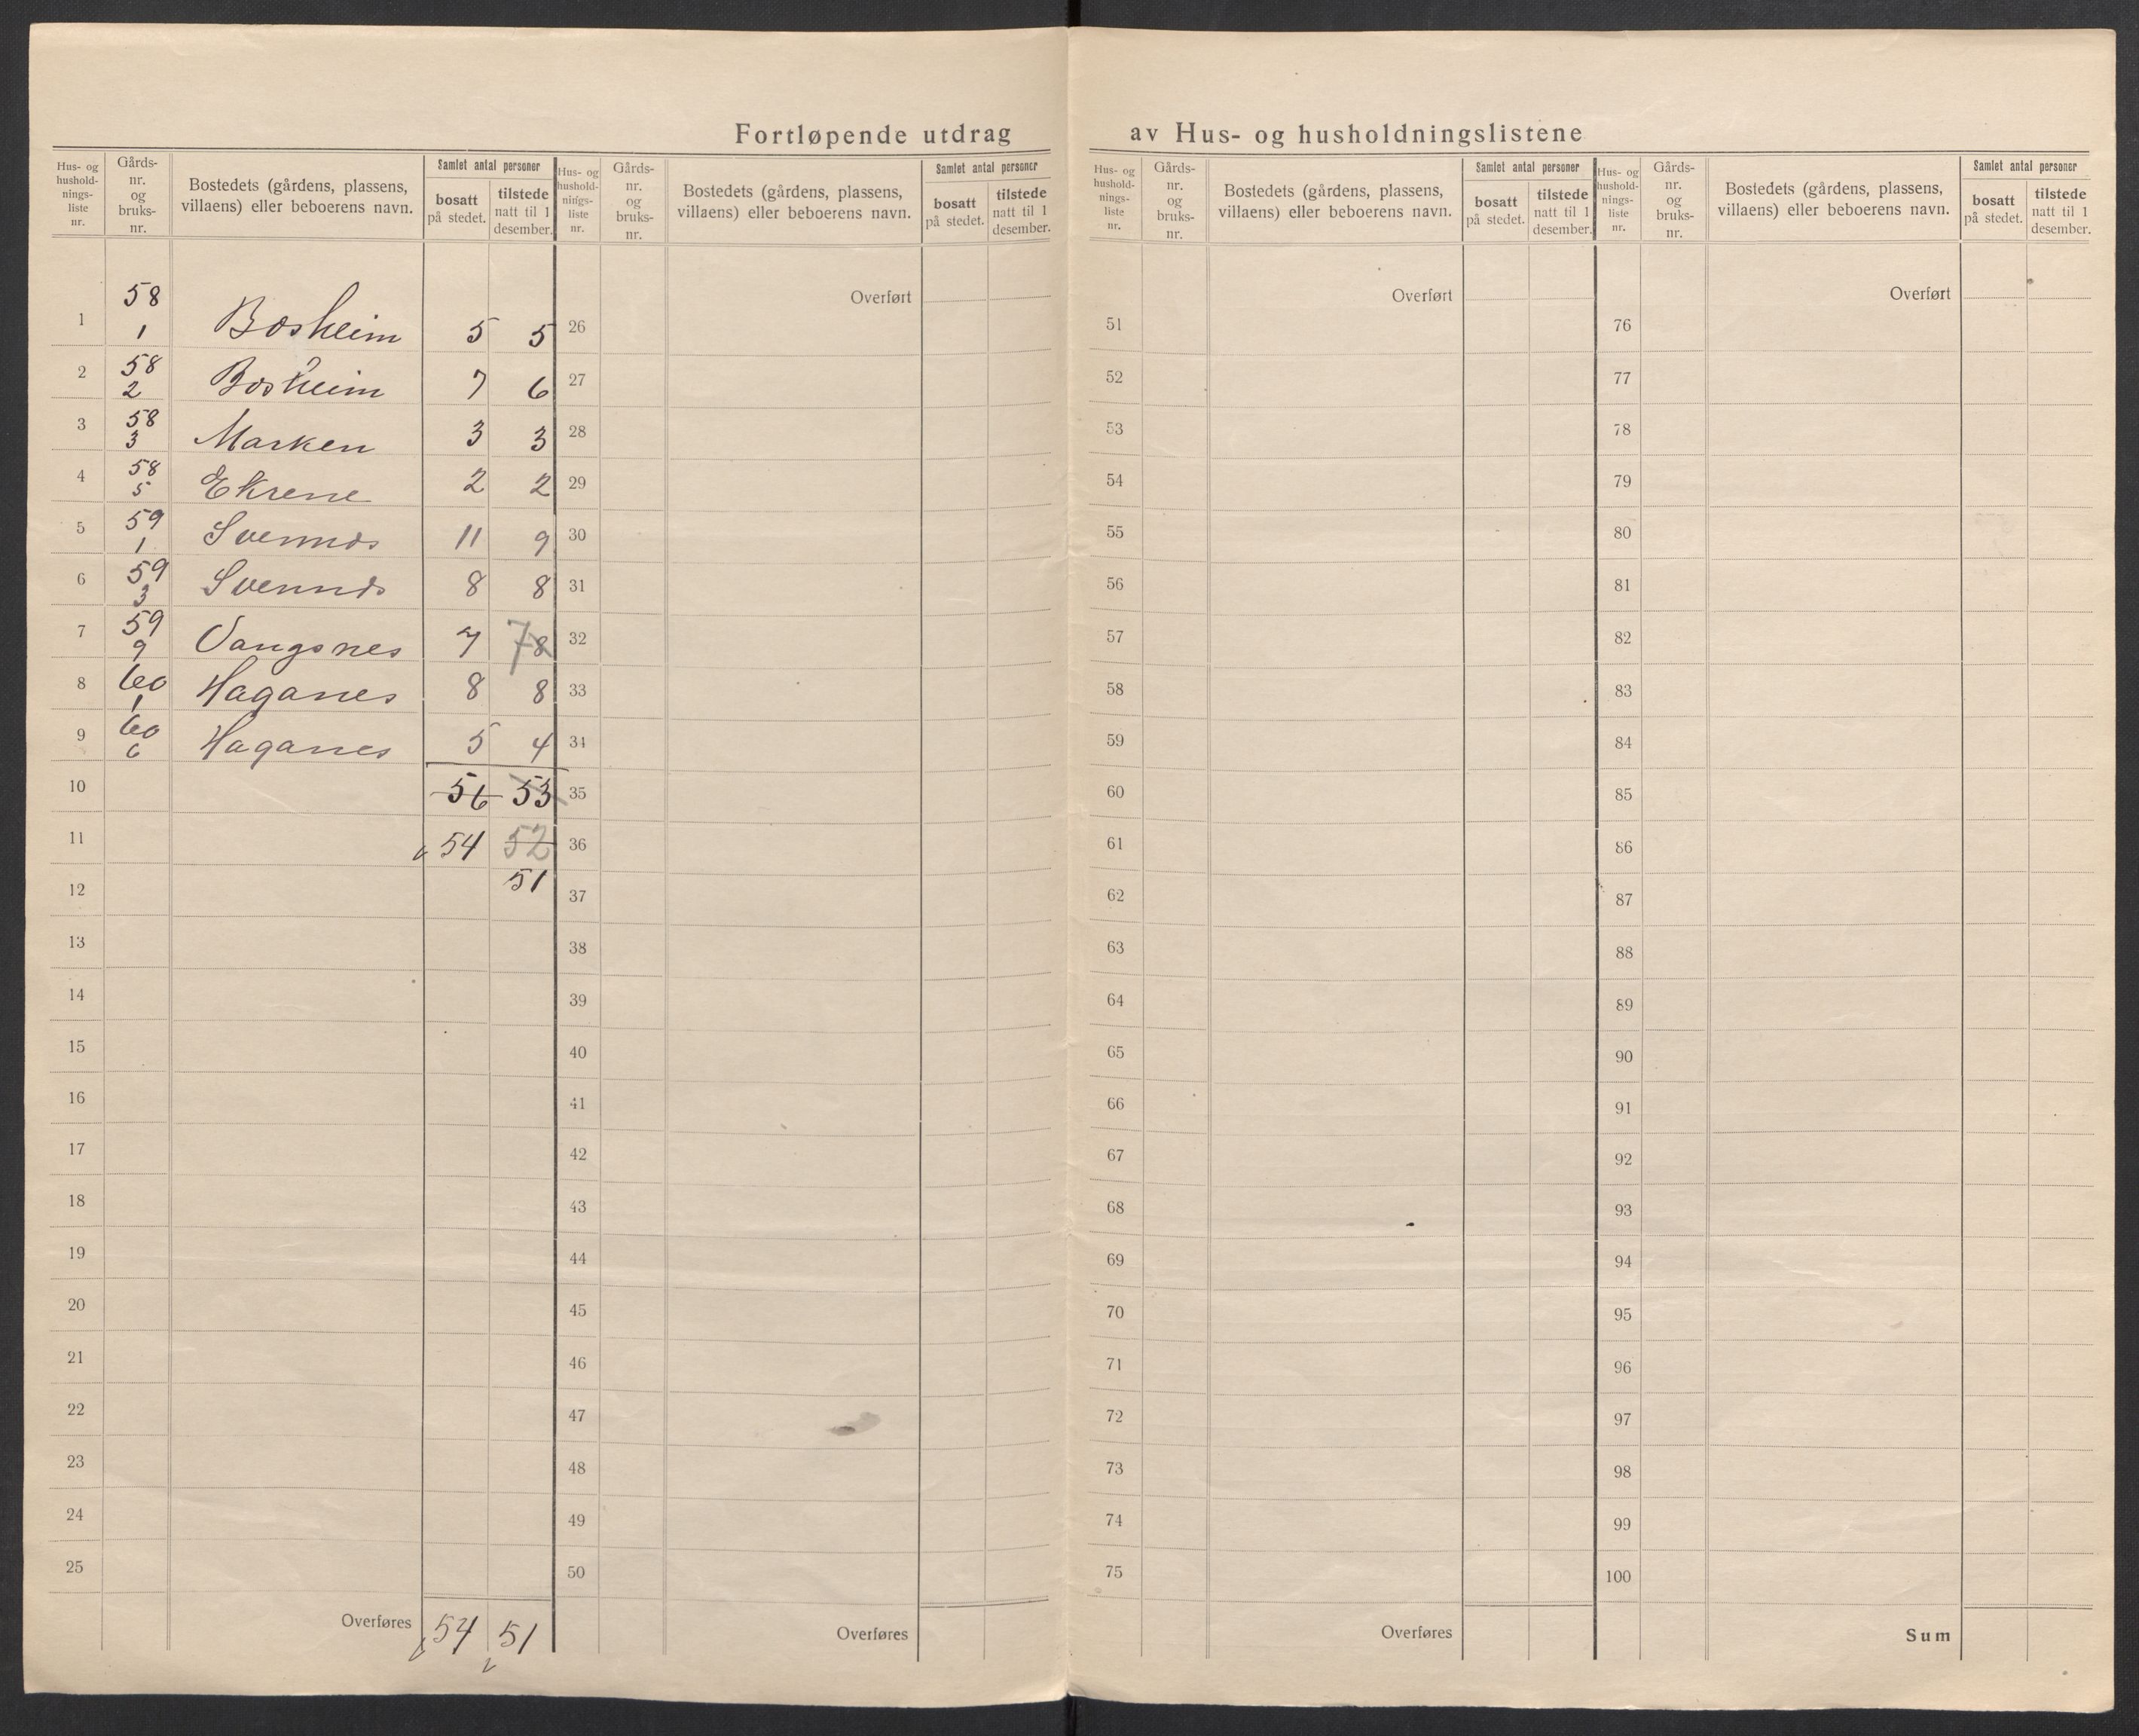 Fortløpende utdrag av Hus- og husholdningslistene
Hus- og hushold-nings-liste nr. Gårds-nr. og bruks-nr. Bostedets (gårdens, plassens, villaens) eller beboerens navn. Samlet antal personer bosatt på stedet. tilstede natt til 1 desember.
1 58 1 Bosheim 5 5
2 58 2 Bosheim 7 6
3 58 3 Marken 3 3
4 58 5 Ekrene 2 2
5 59 1 Svennes 11 9
6 59 3 Svennes 8 8
7 59 9 Vangsnes 7 7 8
8 60 1 Haganes 8 8
9 60 6 Haganes 5 4
10 56 53
11 54 52
12 51
13
14
15
16
17
18
19
20
21
22
23
24
25
Overføres 54 51
Hus- og hushold-nings-liste nr. Gårds-nr. og bruks-nr. Bostedets (gårdens, plassens, villaens) eller beboerens navn. Samlet antal personer bosatt på stedet. tilstede natt til 1 desember.
Overført
26
27
28
29
30
31
32
33
34
35
36
37
38
39
40
41
42
43
44
45
46
47
48
49
50
Overføres
Hus- og hushold-nings-liste nr. Gårds-nr. og bruks-nr. Bostedets (gårdens, plassens, villaens) eller beboerens navn. Samlet antal personer bosatt på stedet. tilstede natt til 1 desember.
Overført
51
52
53
54
55
56
57
58
59
60
61
62
63
64
65
66
67
68
69
70
71
72
73
74
75
Overføres
Hus- og hushold-nings-liste nr. Gårds-nr. og bruks-nr. Bostedets (gårdens, plassens, villaens) eller beboerens navn. Samlet antal personer bosatt på stedet. tilstede natt til 1 desember.
Overført
76
77
78
79
80
81
82
83
84
85
86
87
88
89
90
91
92
93
94
95
96
97
98
99
100
Sum